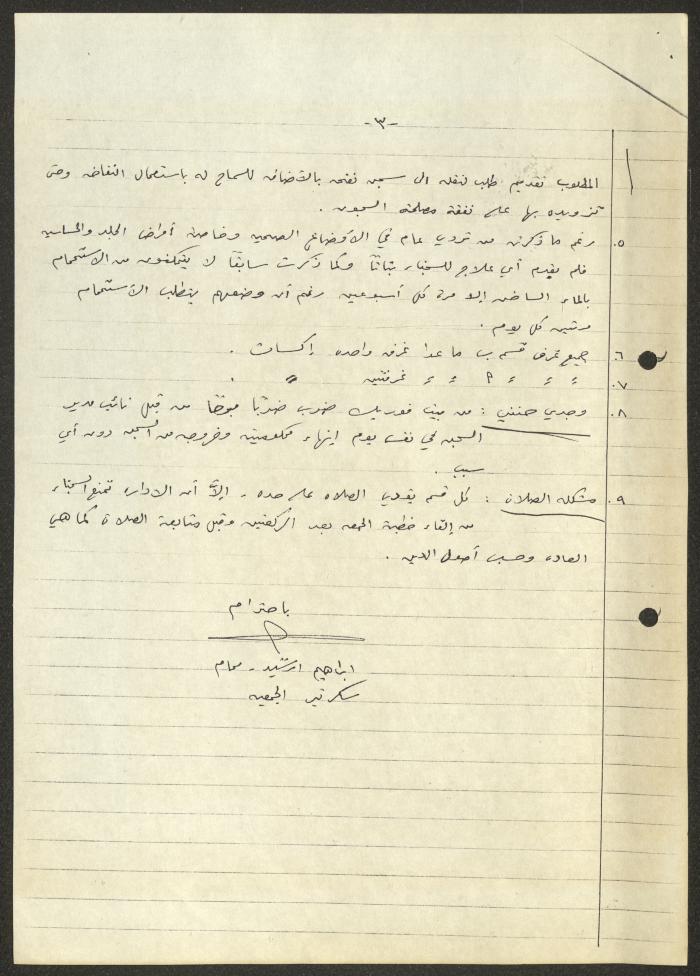 -٣-
المطلوب تقديم طلب لنقله الى سجن نفحه بالاضافه للسماح له باستعمال النفاض وحتى
تزويده بها على نفقة مصلحة السجون .
٥. رغم ما ذكرت من تردي عام في الاوضاع الصحيه وخاصة أمراض الجلد والحساسيه
فلم يقدم أي علاج للسجناء بتاتًا وكما ذكرت سابقًا لا يتمكنون من الاستحمام
بالماء الساخن إلا مرة كل أسبوعين رغم أن وضعهم يتطلب الاستحمام
مرتين كل يوم .
٦. جميع غرف قسم ب ما عدا غرفه واحده إكسات .
٧. " " " " " غرفتين " .
٨. وجدي حنني : من بيت فوريك ضرب ضربًا مبرحًا من قبل نائب مدير
السجن في نفس يوم إنهاء محكوميته وخروجه من السجن دون أي
سبب .
٩. مشكله الصلاة : كل قسم يؤدي الصلاه على حده . إلاّ أن الاداره تمنع السجناء
من إلقاء خطبة الجمعه بعد الركعتين وقبل متابعة الصلاة كما هي
العاده وحسب أصول الدين .
باحترام
ابراهيم ارشيد - محام
سكرتير الجمعيه